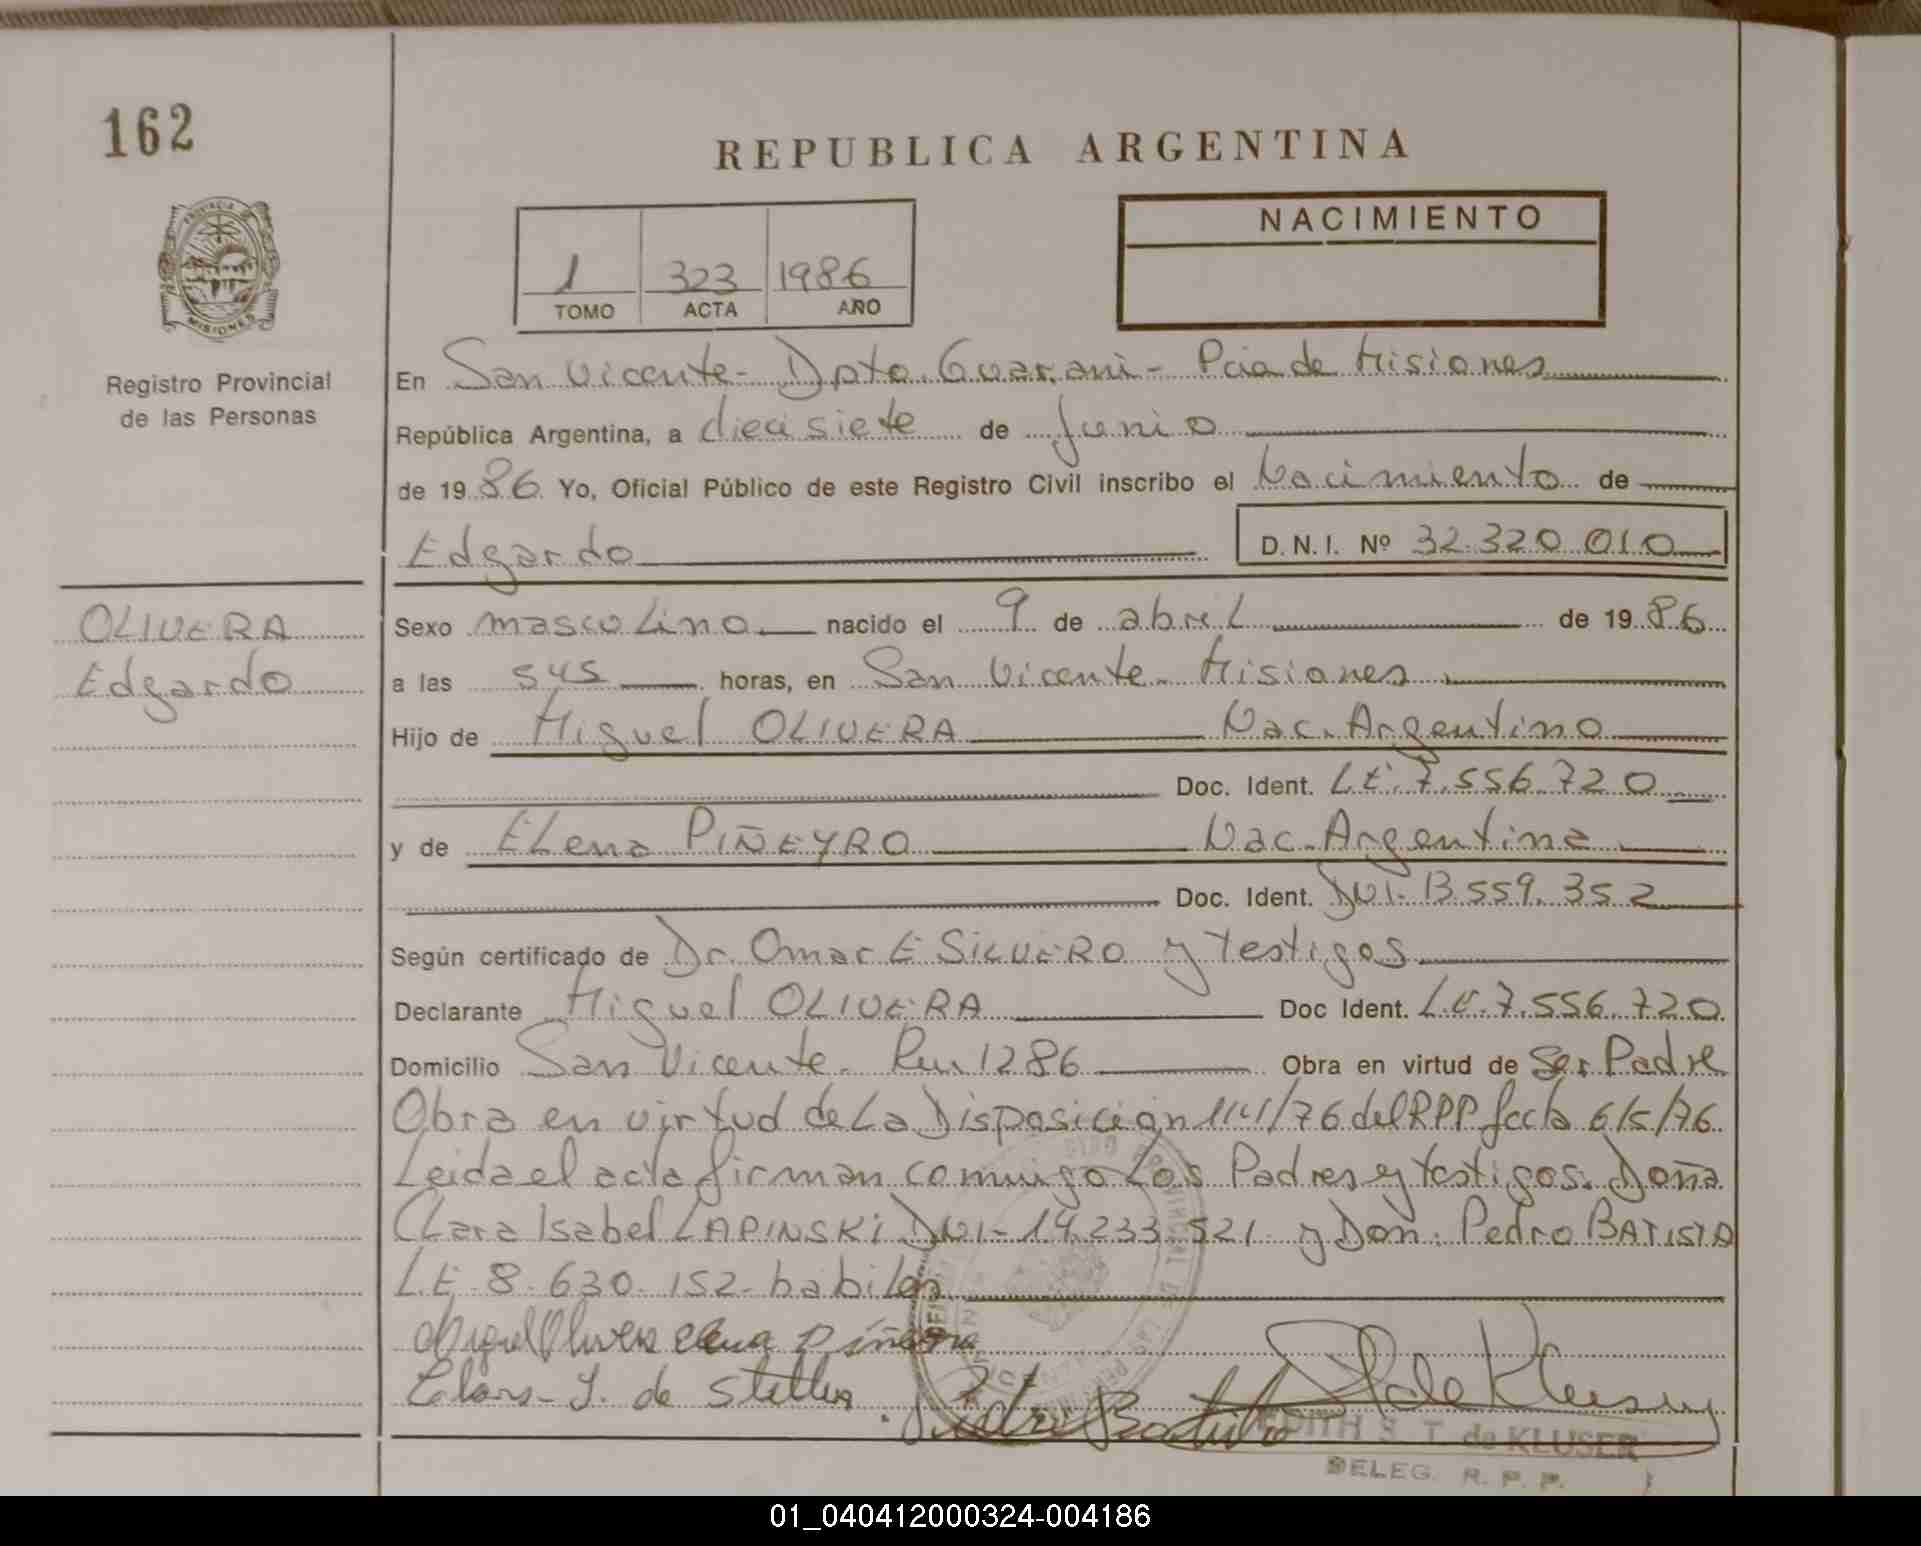 162
REPUBLICA ARGENTINA
PROVINCIA DE
MISIONES
Registro Provincial
de las Personas
1 323 1986
TOMO ACTA AÑO
NACIMIENTO
En San Vicente - Dpto Guarani - Pcia de Misiones
República Argentina, a diecisiete de Junio
de 1986 Yo, Oficial Público de este Registro Civil inscribo el Nacimiento de
Edgardo D.N.I. Nº 32.320.010
OLIVERA
Edgardo
Sexo masculino nacido el 9 de abril de 1986
a las 545 horas, en San Vicente - Misiones
Hijo de Miguel OLIVERA Nac. Argentino
Doc. Ident. L.E. 7.556.720
y de Elena PIÑEYRO Nac. Argentina
Doc. Ident. DNI- 13.559.352
Según certificado de Dr. Omar E SILVERO y testigos
Declarante Miguel OLIVERA Doc Ident. L.E. 7.556.720
Domicilio San Vicente - 1286 Obra en virtud de Ser Padre
Obra en virtud de La Disposición 1141/76 del RPP fecha 6/5/76
Leida el acta firman conmigo Los Padres y testigos. Doña
Clara Isabel LAPINSKI DNI- 14.233.521 y Don: Pedro BATISTA
L.E 8.630.152 - habiles
Miguel Olivera Elena Piñeyra
Clara I. de
Pedro Batista
de Kluser
EDITH E. T. de KLUSER
DELEG. R. P. P.
01_040412000324-004186